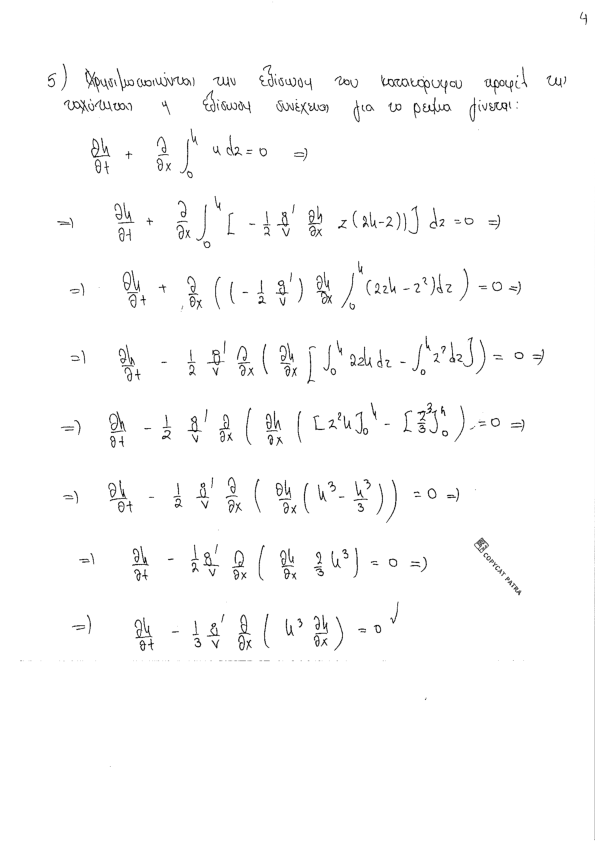 4
5) Χρησιμοποιώντας την εξίσωση του κατακόρυφου προφίλ της
ταχύτητας η εξίσωση συνέχειας για το ρεύμα γίνεται:
∂h/∂t + ∂/∂x ∫₀ʰ u dz = 0 =)
=) ∂h/∂t + ∂/∂x ∫₀ʰ [ - 1/2 g'/ν ∂h/∂x z(2h-z))] dz = 0 =)
=) ∂h/∂t + ∂/∂x ((-1/2 g'/ν) ∂h/∂x ∫₀ʰ (2zh - z²)dz) = 0 =)
=) ∂h/∂t - 1/2 g'/ν ∂/∂x (∂h/∂x [∫₀ʰ 2zh dz - ∫₀ʰ z² dz]) = 0 =)
=) ∂h/∂t - 1/2 g'/ν ∂/∂x (∂h/∂x ([z²h]₀ʰ - [z³/3]₀ʰ) = 0 =)
=) ∂h/∂t - 1/2 g'/ν ∂/∂x (∂h/∂x (h³ - h³/3)) = 0 =)
=) ∂h/∂t - 1/2 g'/ν ∂/∂x (∂h/∂x 2/3 h³) = 0 =)
COPYCAT PATRA
=) ∂h/∂t - 1/3 g'/ν ∂/∂x (h³ ∂h/∂x) = 0 ✓